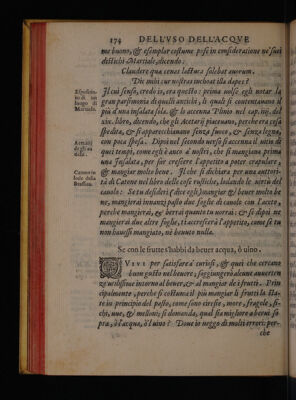 174 DELL'VSO DELL'ACQVE
me buono, & esemplar costume pose in consideratione ne' suoi
distichi Martiale, dicendo:
Claudere quæ cenas lactuca solebat auorum,
Dic mihi cur nostras inchoat illa dapes?
Espositio-
ne di un
luogo di
Martiale.
Il cui senso, credo io, era questo: prima volse egli notar la
gran parsimonia di quelli antichi, li quali si contentauano il
più d'una insalata sola, & lo accenna Plinio nel cap.
libro, dicendo, che gli Acetarij piaceuano, perche era cosa
spedita, & si apparecchianano senza fuoco, & senza legne,
con poca spesa. Dipoi nel secondo verso si accenna il
Acetarij
quei tempi, come egli è anco a' nostri, che si mangiaua prima
una Insalata, per far crescere l'appetito a poter crapulare,
Catone in
lode della
Brassica.
& mangiar molto bene. Il che si dichiara per una autori-
tà di Catone nel libro delle cose rustiche, lodando le uirtù del
cauolo: Se tu desideri (dice egli) mangiar & beuer molto be
ne, mangierai innanzi pasto due foglie di cauolo con l'aceto,
perche mangierai, & berrai quanto tu uorrai: & se dipoi ne
mangierai due altre foglie, ti accrescerà l'appetito, come se tu
non hauessi mangiato, nè beuuto nulla.
Se con le frutte s'habbi da beuer acqua, ò uino.
QVIVI per satisfare a' curiosi, & quei che cercano
buon gusto nel beuere, soggiungerò alcune auuerten
ze utilissime intorno al bere, & al mangiar de i frutti. Prin
cipalmente, perche si costuma il più mangiar li frutti la sta-
te in principio del pasto, come sono cirese, more, fragole, fi-
chi, uue, & melloni; si domanda, qual sia migliore a berui so-
pra, ò l'acqua, ò l uino? Doue io ueggo di molti errori: per-
che